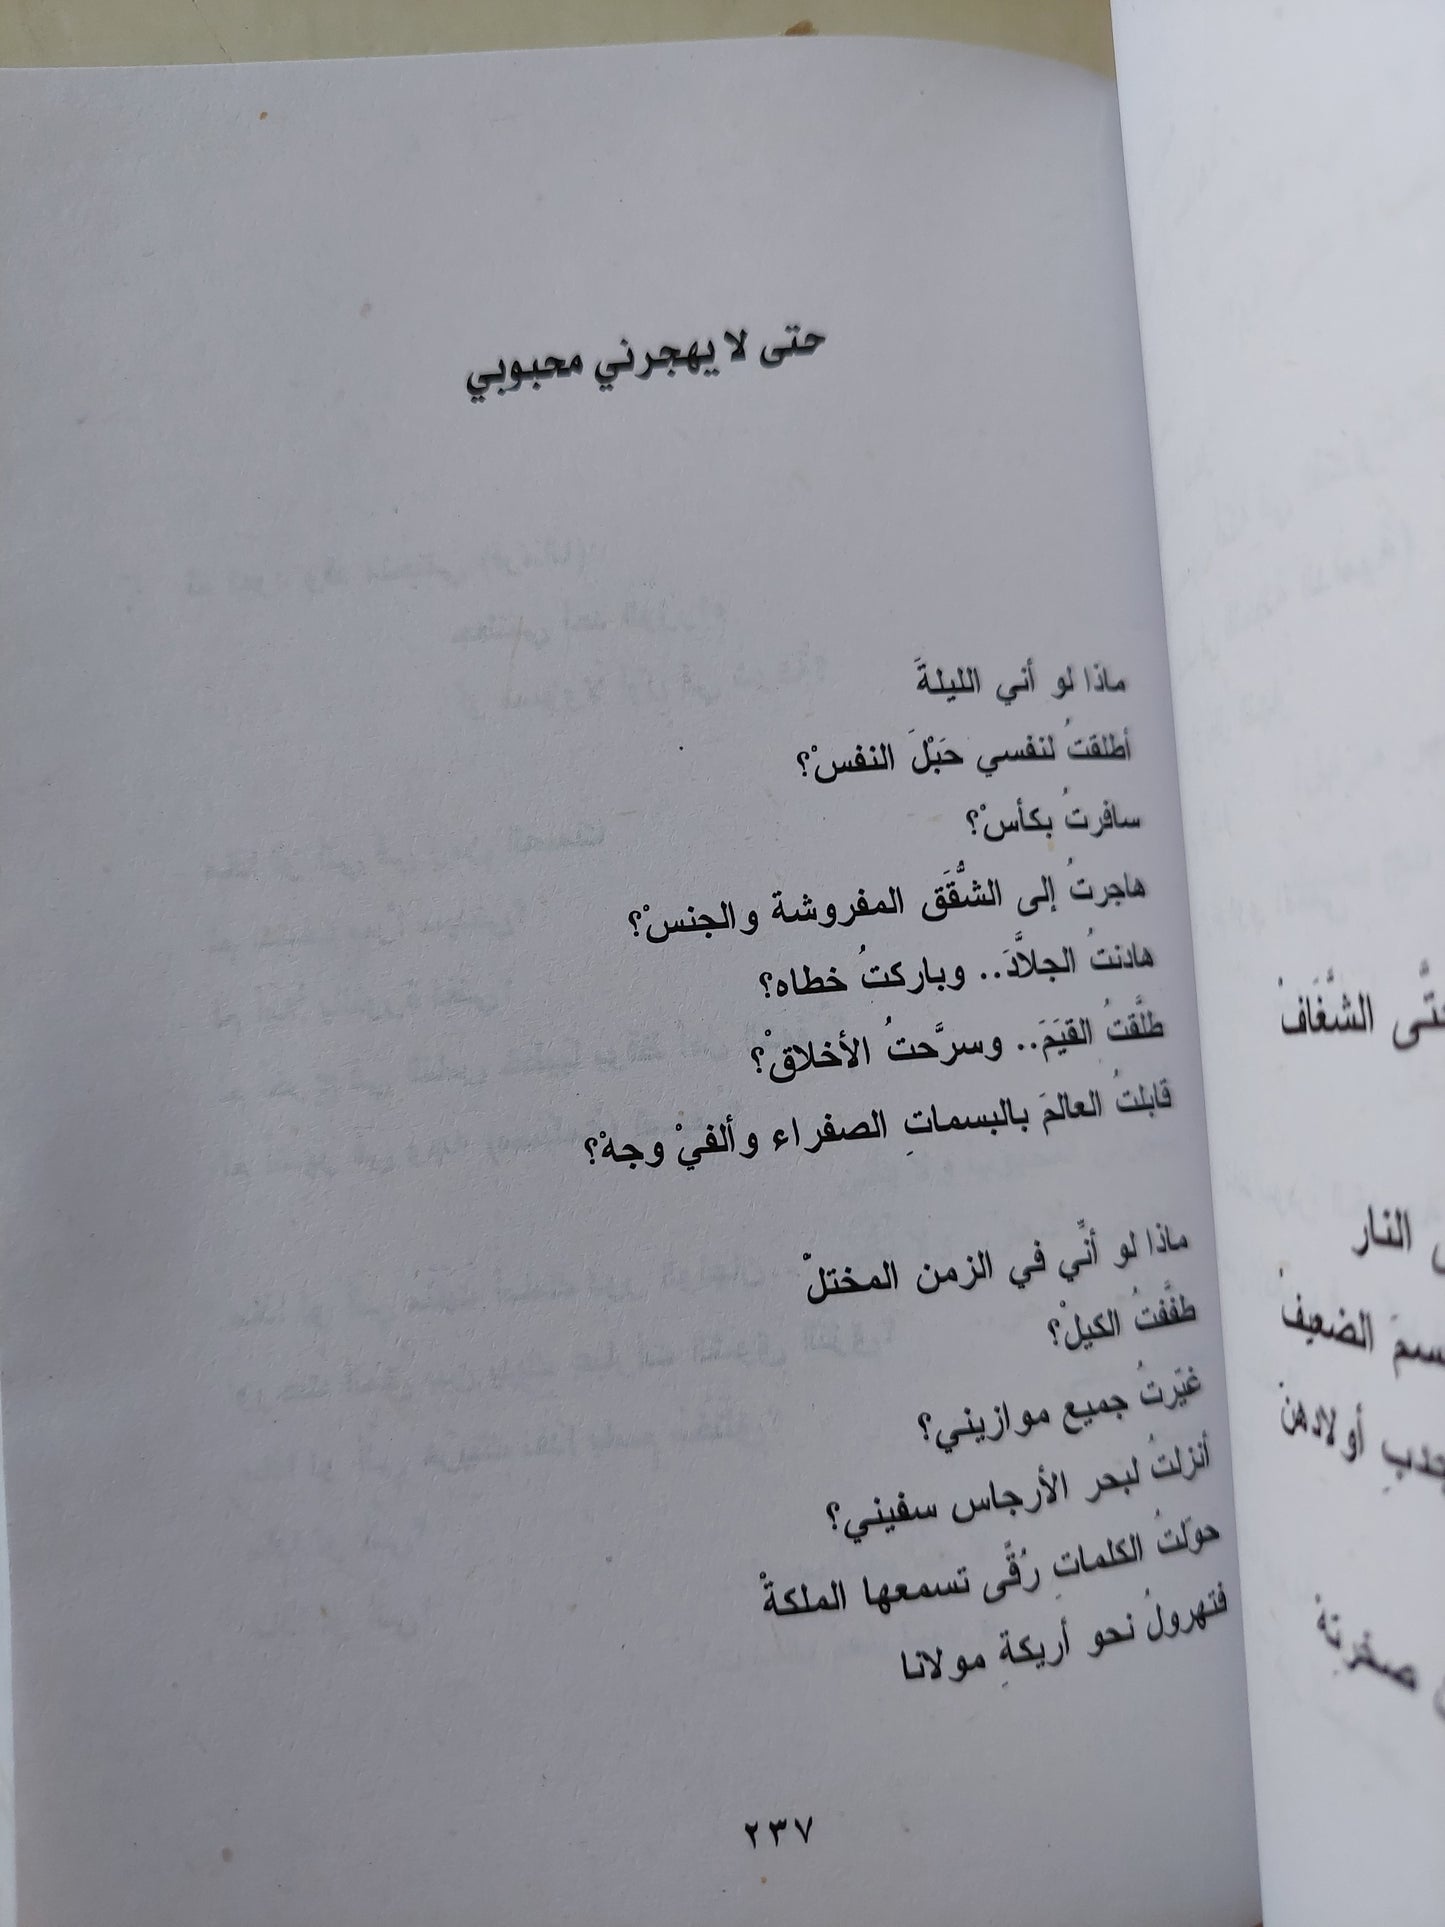 حتى لا يهجرني محبوبي
ماذا لو أني الليلةَ
أطلقتُ لنفسي حَبْلَ النفسْ؟
سافرتُ بكأسْ؟
هاجرتُ إلى الشُّقَق المفروشة والجنسْ؟
هادنتُ الجلاَّدَ.. وباركتُ خطاه؟
طلَّقتُ القيَمَ.. وسرَّحتُ الأخلاقْ؟
قابلتُ العالمَ بالبسماتِ الصفراء وألفيْ وجهْ؟
ماذا لو أنِّي في الزمن المختلْ
طفَّفتُ الكيلْ؟
غيّرتُ جميع موازيني؟
أنزلتُ لبحر الأرجاس سفيني؟
حوّلتُ الكلماتِ رُقًى تسمعها الملكةْ
فتهرولُ نحو أريكةِ مولانا
٢٣٧
الشَّغَافْ
النار
الضعيفْ
أولادهنْ
صخرتهْ